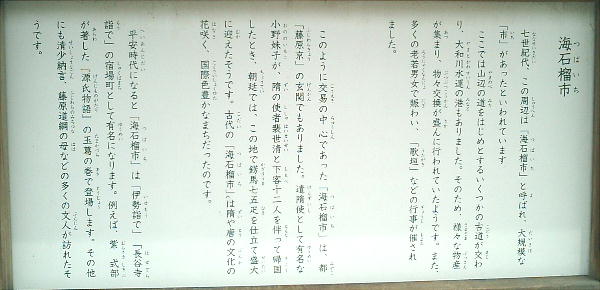 海石榴市
七世紀代、この周辺は「海石榴市」と呼ばれ、大規模な
「市」があったといわれています
ここでは山辺の道をはじめとするいくつかの古道が交わ
り、大和川水運の港もありました。そのため、様々な物産
が集まり、物々交換が盛んに行われていたようです。また、
多くの老若男女で賑わい、「歌垣」などの行事が催され
ました。
このように交易の中心であった「海石榴市」は、都
「藤原京」の玄関でもありました。遣隋使として有名な
小野妹子が、隋の使者裴世清と下客十二人を伴って帰国
したとき、朝廷では、この地で飾馬七五疋を仕立て盛大
に迎えたそうです。古代の「海石榴市」は隋や唐の文化の
花咲く、国際色豊かなまちだったのです。
平安時代になると「海石榴市」は「伊勢詣で」「長谷寺
詣で」の宿場町として有名になります。例えば、紫式部
が著した「源氏物語」の玉葛の巻で登場します。その他
にも清少納言、藤原道綱の母などの多くの文人が訪れたそ
うです。